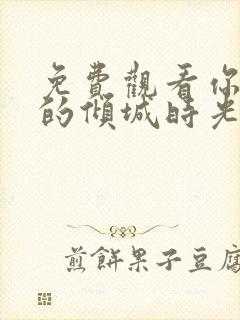 免費觀看你
的傾城時光
煎餅果子豆腐